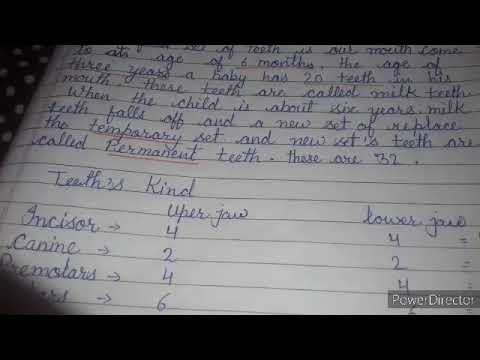 set of teeth is our mouth come
to at age of 6 months. the age of
three years a baby has 20 teeth in his
mouth. these teeth are called milk teeth
When the child is about six years. milk
teeth falls off and a new set of replace
the temporary set and new set's teeth are
called Permanent teeth. these are 32.
Teeth's Kind
Uper jaw lower jaw
Incisor → 4 4 =
Canine → 2 2 =
Premolars → 4 4 =
→ 6
PowerDirector